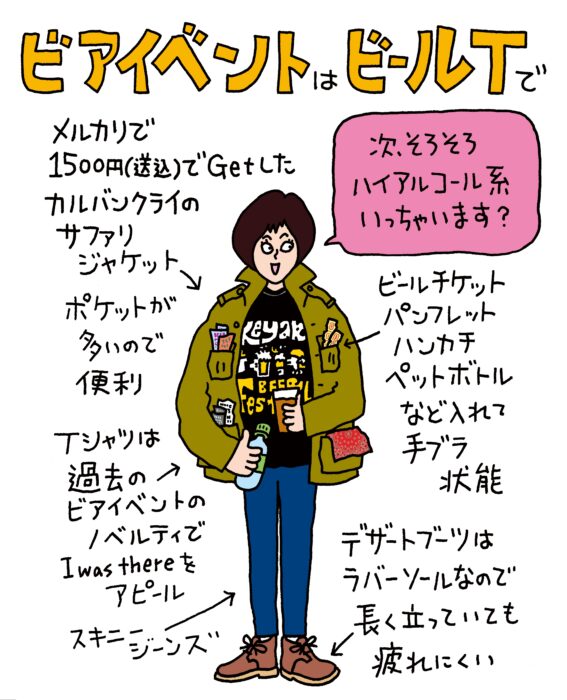 ビアイベントはビールTで
メルカリで
1500円(送込)でGetした
カルバンクライの
サファリ
ジャケット
ポケットが
多いので
便利
Tシャツは
過去の
ビアイベントの
ノベルティで
I was thereを
アピール
スキニー
ジーンズ
次、そろそろ
ハイアルコール系
いっちゃいます?
Keyak
BEER
Fes
ビールチケット
パンフレット
ハンカチ
ペットボトル
など入れて
手ブラ
状能
デザートブーツは
ラバーソールなので
長く立っていても
疲れにくい